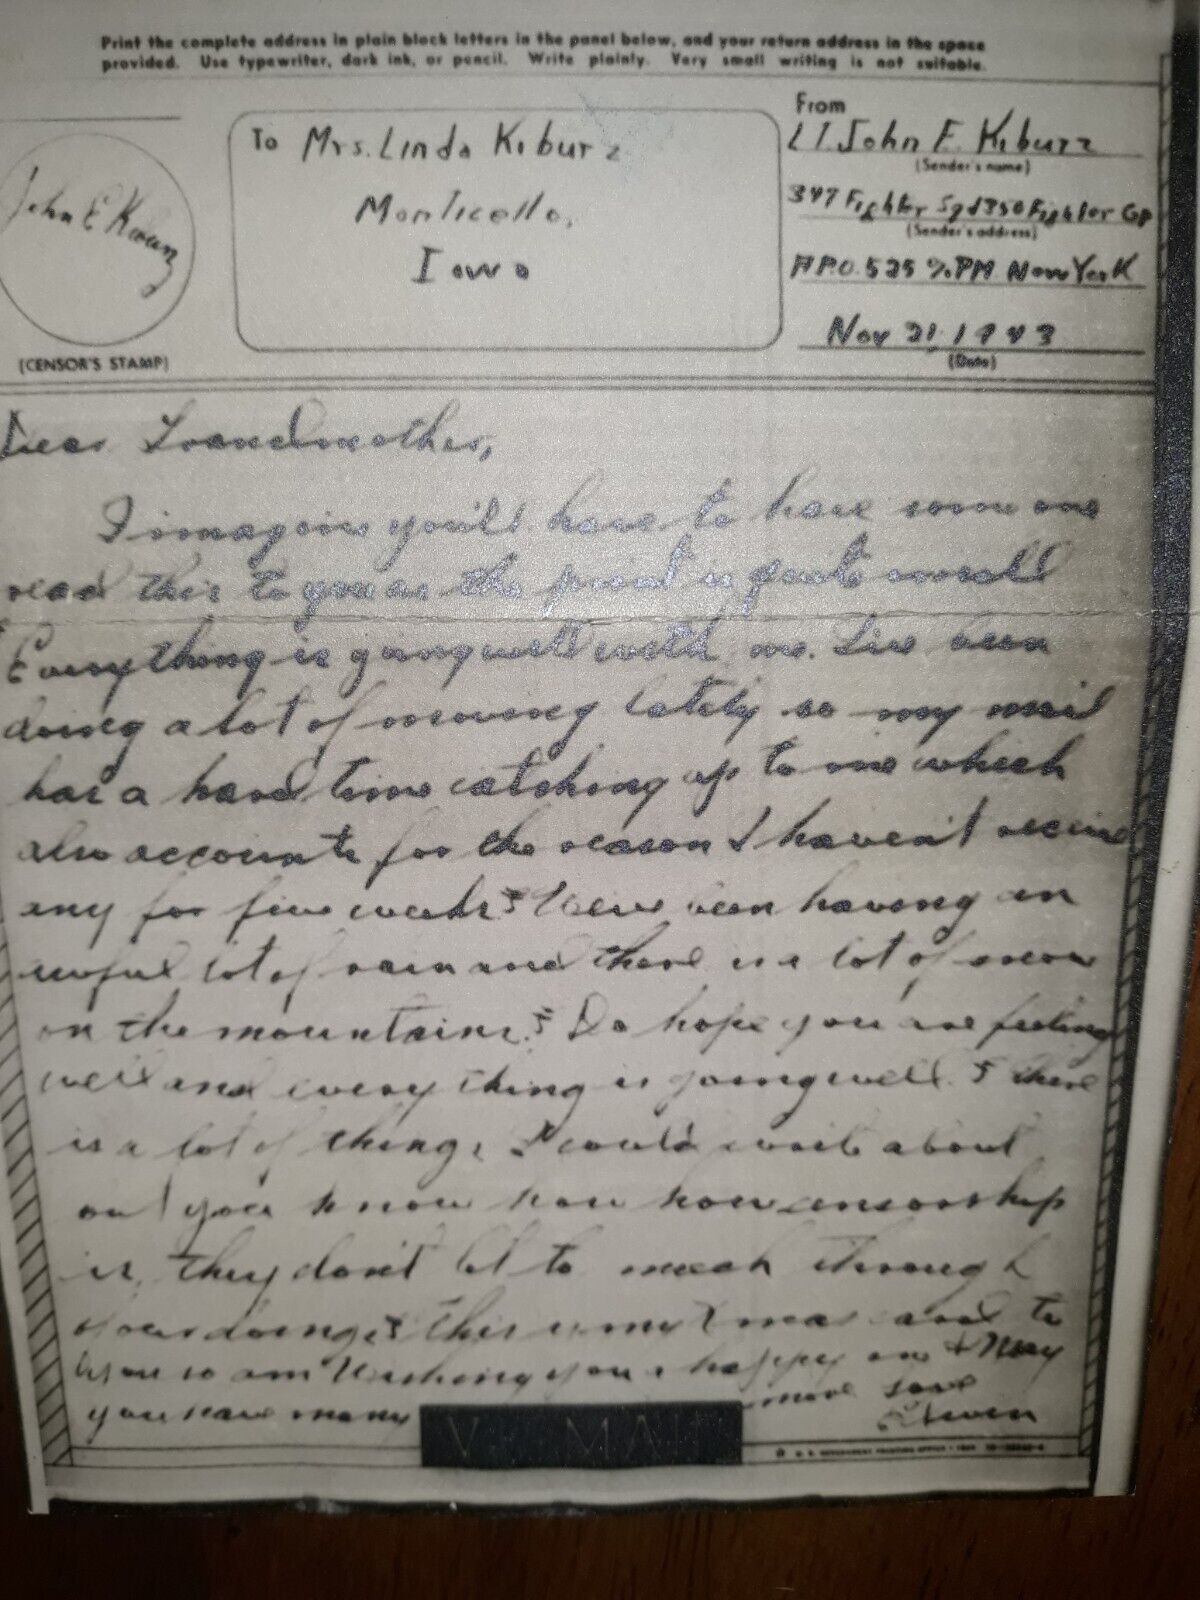 Print the complete address in plain block letters in the panel below, and your return address in the space
provided. Use typewriter, dark ink, or pencil. Write plainly. Very small writing is not suitable.
John E Kiburz
(CENSOR'S STAMP)
To Mrs. Linda Kiburz
Monticello,
Iowa
From
LT. John E. Kiburz
(Sender's name)
347 Fighter Sqd 350 Fighter Gp
(Sender's address)
A.P.O. 525 % PM. New York
Nov 21, 1943
(Date)
Dear Grandmother,
I imagine you'll have to have some one
read this to you as the print is quite small
Everything is going well with me. I've been
doing a lot of moving lately so my mail
has a hard time catching up to me which
also accounts for the reason I haven't receive
any for five weeks. We've been having an
awful lot of rain and there is a lot of snow
on the mountains. Do hope you are feeling
well and every thing is going well. there
is a lot of things I could write about
but you know how how censorship
is, they don't let to much through
of our doings. this is my Xmas card to
you so am Wishing you a happy one & May
you have many more love
V - MAIL
U. S. GOVERNMENT PRINTING OFFICE